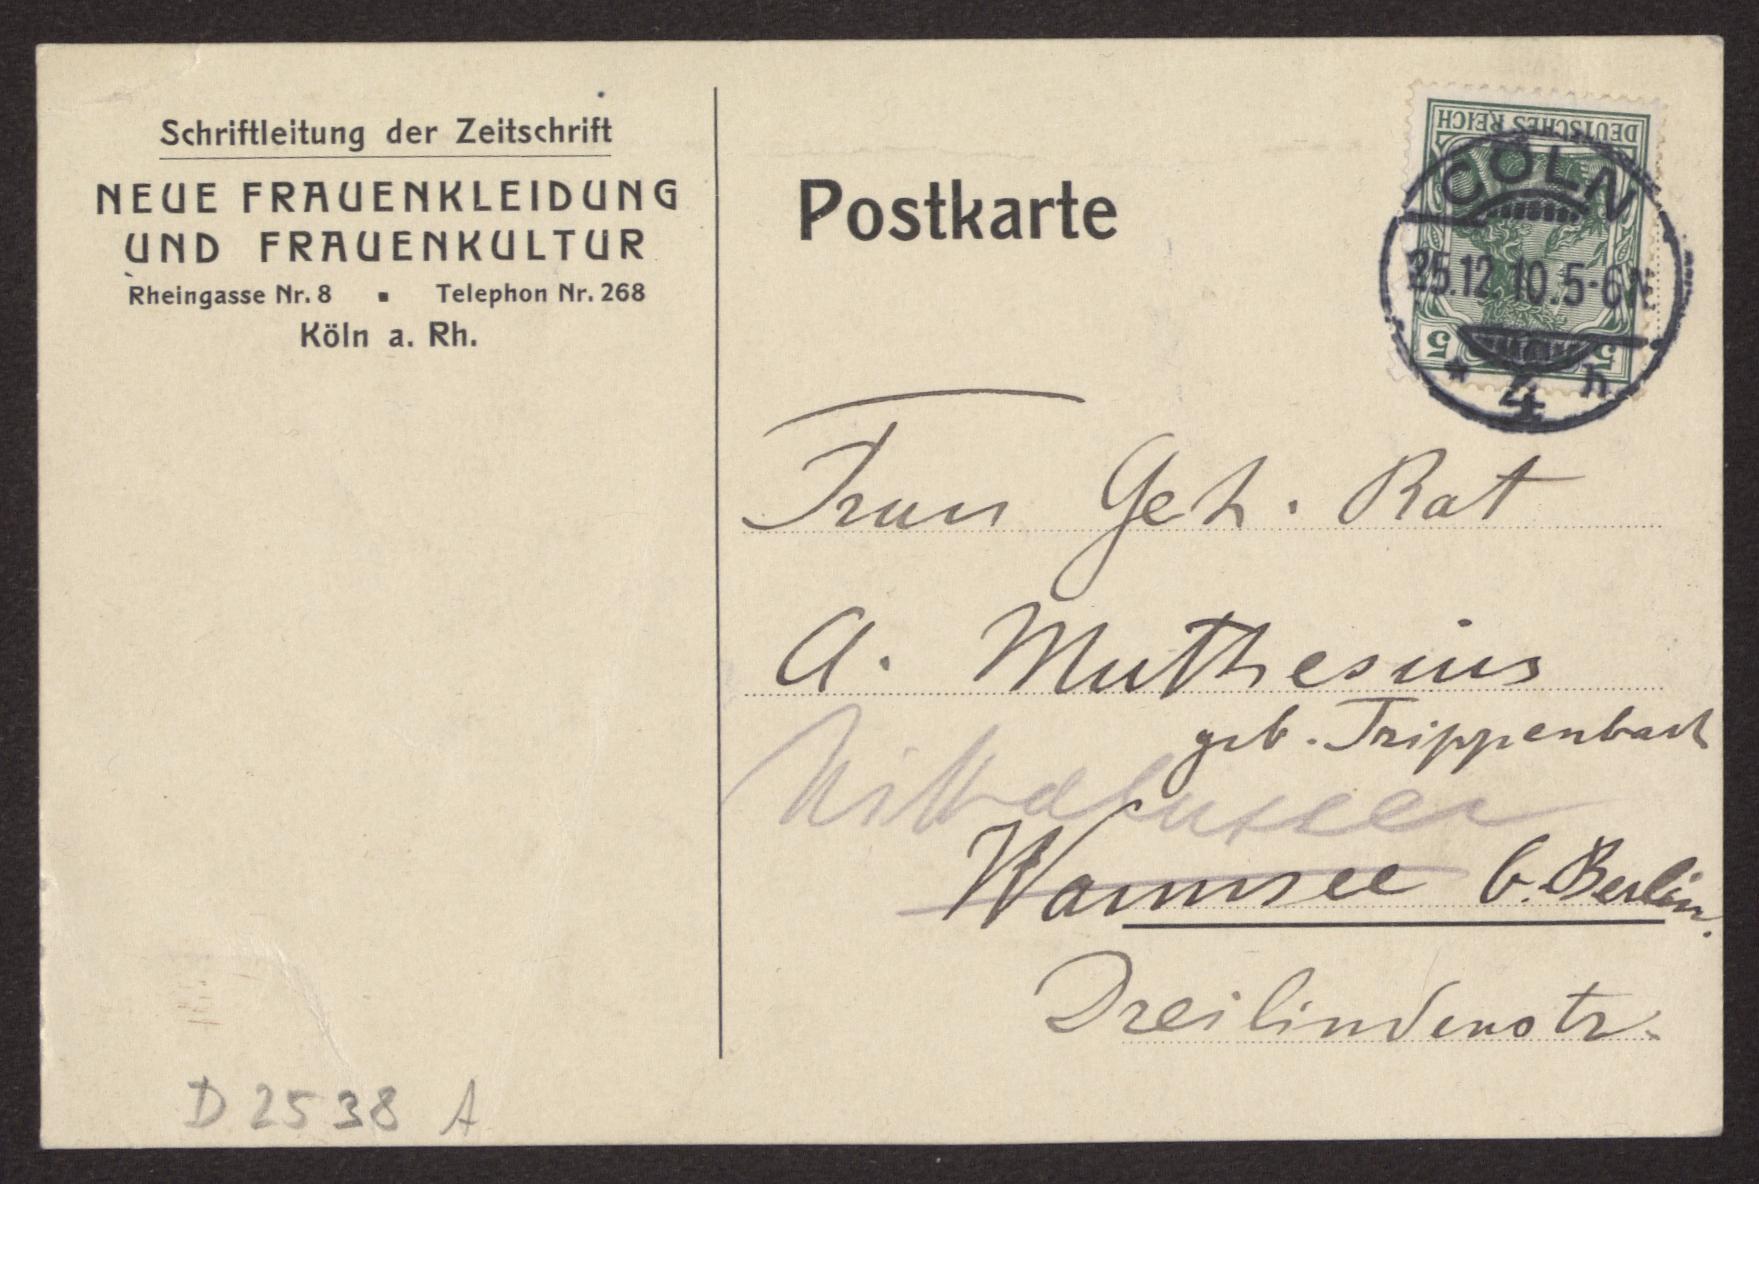 Schriftleitung der Zeitschrift
NEUE FRAUENKLEIDUNG
UND FRAUENKULTUR
Rheingasse Nr. 8 ▪ Telephon Nr. 268
Köln a. Rh.
Postkarte
DEUTSCHES REICH
5 5
CÖLN
25.12.10.5-6N
* 4 h
Frau Geh. Rat
A. Muthesius
geb. Trippenbach
Wannsee b. Berlin.
Dreilindenstr.
D 2538 A